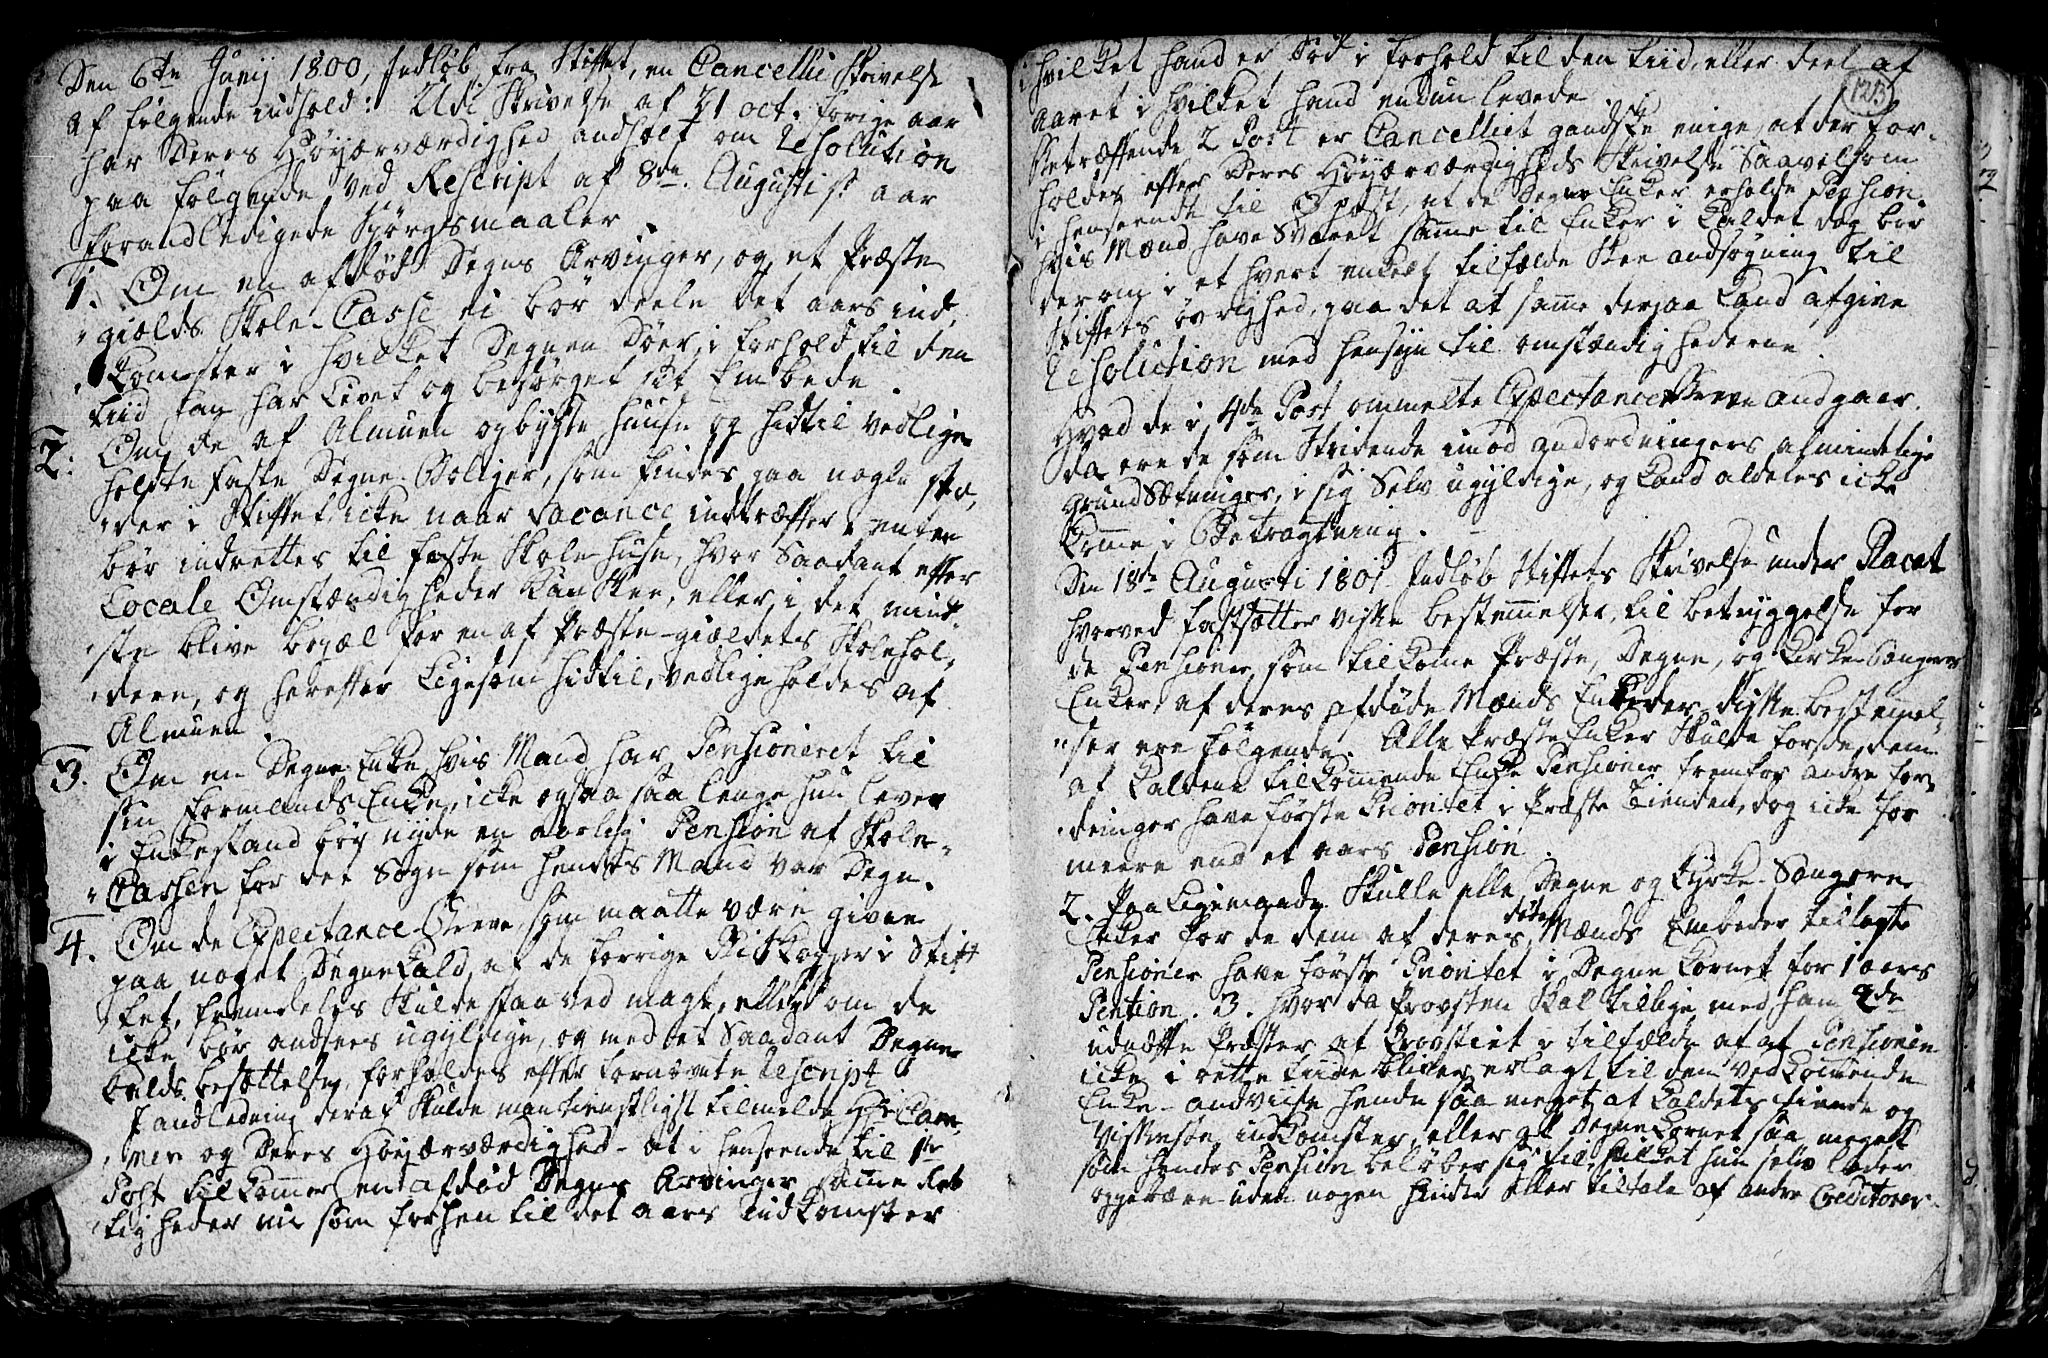 Den 6te Junij 1800, Indløb fra Stiftet, en Cancellie Skrivelse
af følgende indhold: Udi Skrivelse af 21 oct. forige aar
har Deres Høyærværdighed andholt om Resolution
paa følgende ved Rescript af 8de Augusti st aar
forandledigede Spørgsmaaler
1. Om en afdød Degns Arvinger, og et Præste
giælds Skole-Casse ei bør deele det aars ind
komster i hvilket Degnen Døer, i forhold til den
tiid han har Levet og besørget sit Embede.
2. Om de af Almuen opbygte Huuse og hidtil vedlige
holdte faste Degne-Boliger, som findes paa nogle stæ-
der i Stiftet, icke naar Vacance indtræffer, enten
bør indrettes til faste Skole huse, hvor Saadant efter
Locale Omstændigheder kan Skee, eller i det mind-
ste blive bopæl for en af Præste-giældets Skolehol-
dere, og herefter Ligesom hidtil, vedligeholdes af
Almuen.
3. Om en Degne Enke, hvis Mand har Pensioneret til
sin Formands Enke, icke ogsaa saa lenge hun lever
i Enkestand bør nyde en aarlig Pension af Skole-
Cassen for det Sogn som hendes Mand var Degn.
4. Om de Expectance-Breve, som maatte være given
paa noget Degne Kald, af de forrige Biskopper i Stif-
tet, fremdeles skulde staa ved magt, eller om de
icke bør andsees ugyldige, og med et Saadant Degne
kalds besættelse, forholdes efter fornævnte Rescript
I andledning deraf skulde man tienstligst tilmelde Hr Cam-
mer og Deres Høyærværdighed - at i henseende til 1te
Post tilkommer en afdød Degns Arvinger samme Ret
tigheder nu som forhen til det aars indkomster
i hvilket hand er Død i forhold til den tiid, eller deel af
123
aaret i hvilket hand endnu levede
Betræffende 2 Post er Cancelliet gandske enige, at der for-
holdes efter Deres Høyærværdigheds Skrivelse Saavelsom
i henseende til 3 Post, at de Degne Enker erholde Pension
hvis Mænd have Svaret samme til Enker i Kaldet dog bør
derom i et hvert enkelt tilfælde skee andsøgning til
Stiftets øvrighed, paa det at samme derpaa kand afgive
Resolution med hensyn til omstændighederne.
Hvad de i 4de Post ommelte Expectance Breve andgaar.
da ere de som Stridende imod andordningers almindelige
grund Sætninger, i sig Selv ugyldige, og kand aldeles icke
komme i Betragtning.
Den 18de Augusti 1801 Indløb Stiftets Skrivelse under Placat
hvorved fastsætter visse bestemmelser, til betryggelse for
de Pensioner, som tilkome Præste, Degne, og Kirke-Sangeres
Enker, af deres afdøde Mænds Embeder, disse bestemel-
ser ere følgende. Alle Præste Enker Skulde for de, dem
af Kaldene tilkommende Enke Pensioner, fremfor andre for-
dringer have første Prioritet i Præste Tienden, dog icke for
meere end et aars Pension.
2. Paa Ligemaade Skulle alle Degne og Kyrke-Sangeres
Enker for de dem af deres døde Mænds Embeder tillagte
Pensioner have første Prioritet i Degne Kornet for 1 aars
Pention. 3. hvor da Provsten Skal tillige med ham 2de
udnæfte Præster at Provstiet i tilfælde af at Pensionen
icke i rette tiide bliver erlagt til den vedkommende
Enke - andviise hende saa meget at Kaldets tiende og
visse indkomster, eller at Degne Kornet saa megett
som hendes Pension beløber sig til, hvilket hun selv lader
oppebære uden nogen hinder eller tiltale af andre Creditorer.